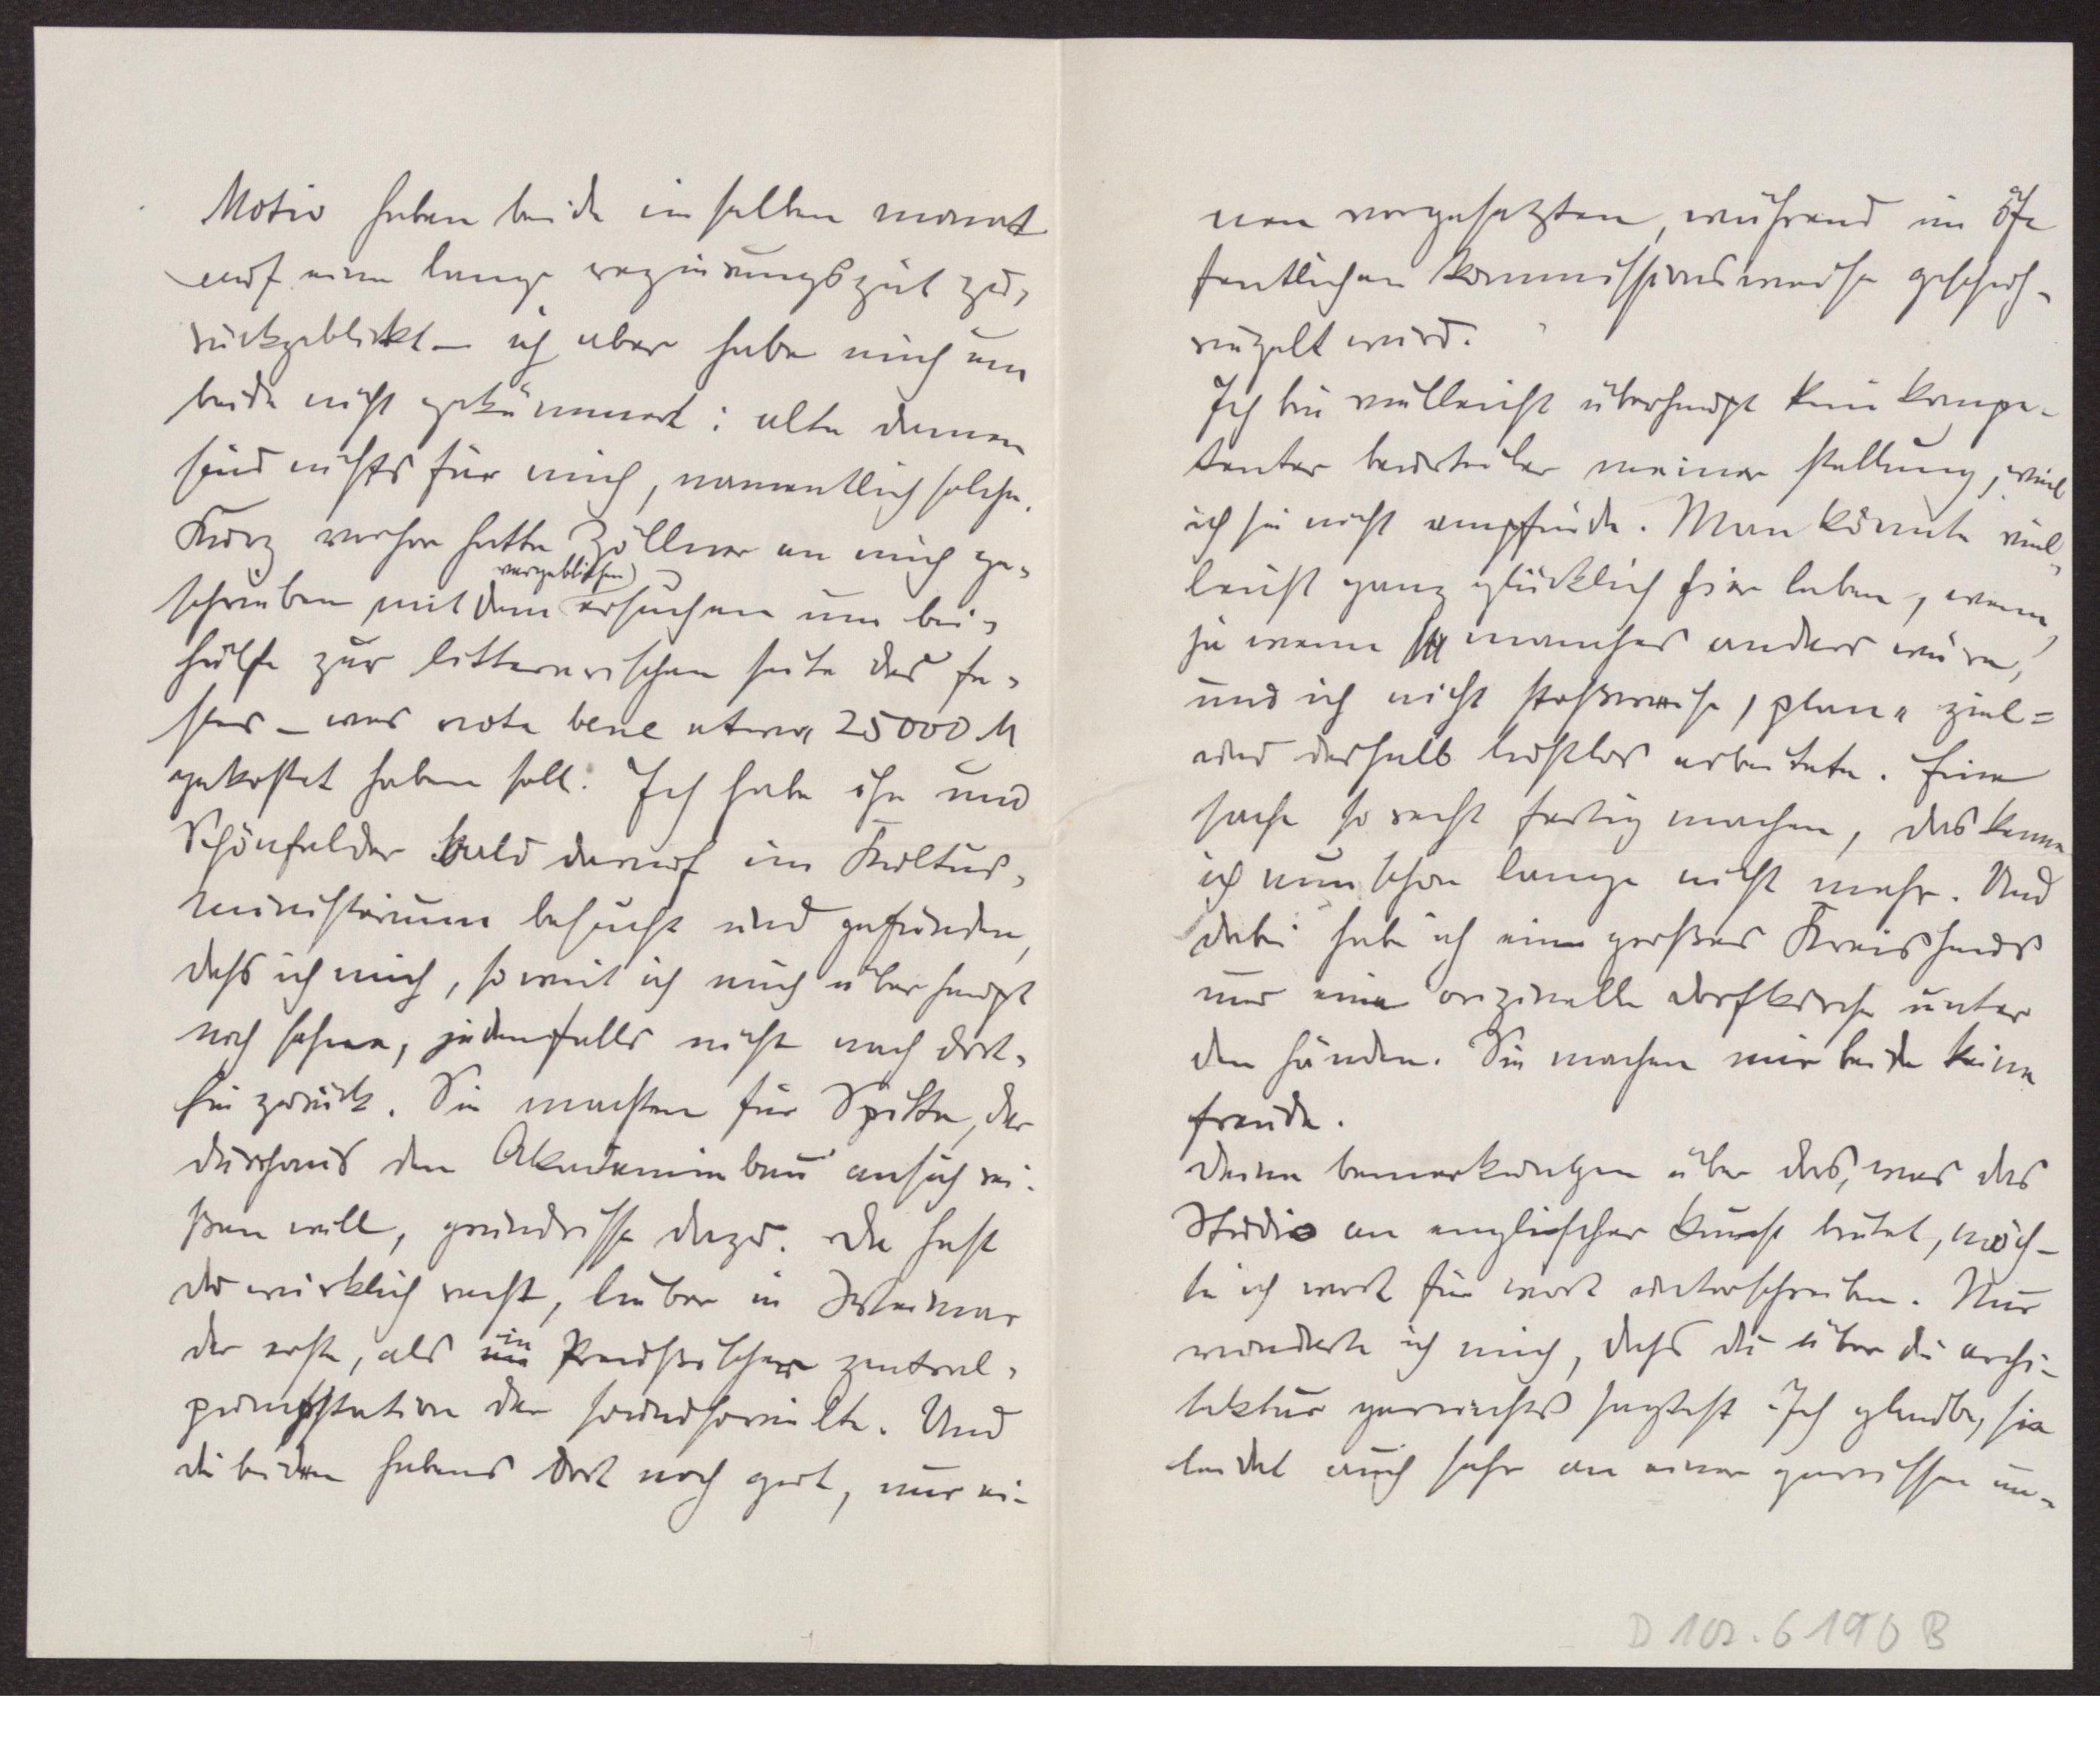 Motiv haben beide im selben monat
auf eine lange regierungszeit zu-
rückgeblickt – ich aber habe mich um
beide nicht gekümmert: alte damen
sind nichts für mich, namentlich solche.
Kurz vorher hatte Zöllner an mich ge-
schrieben mit dem (vergeblichen) ersuchen um bei-
hülfe zur litterarischen seite des fe-
stes – was nota bene etwa 25000 M
gekostet haben soll. Ich habe ihn und
Schönfelder bald darauf im Kultus-
ministerium besucht und gefunden,
dass ich mich, soweit ich mich überhaupt
noch sehne, jedenfalls nicht nach dort-
hin zurück. Sie machten für Spitta, der
durchaus den Akademiebau an sich rei-
ßen will, grundrisse dazu. Da hast
du wirklich recht, lieber in Weimar
der erste, als in Preußischer zentral-
pumpstation der soundsovielte. Und
die beiden habens dort noch gut, nur ei-
nen vorgesetzten, während im öf-
fentlichen kommissionsweise geschuh-
riegelt wird.
Ich bin vielleicht überhaupt kein kompe-
tenter beurteiler meiner stellung, weil
ich sie nicht empfinde. Man könnte viel-
leicht ganz glücklich hier leben, wenn,
ja wenn manches anders wäre,
und ich nicht stoßweise, plan- ziel-
und deshalb lustlos arbeitete. Eine
sache so recht fertig machen, das kenne
ich nun schon lange nicht mehr. Und
dabei habe ich ein großes Kreishaus
und eine originelle dorfkirche unter
den händen. Sie machen mir beide keine
freude.
Deine bemerkungen über das, was das
Studio an englischer kunst bietet, möch-
te ich wort für wort unterschreiben. Nur
wunderte ich mich, dass du über die archi-
tektur garnichts sagtest. Ich glaube, sie
leidet auch sehr an einer gewissen un-
D 102.6190 B